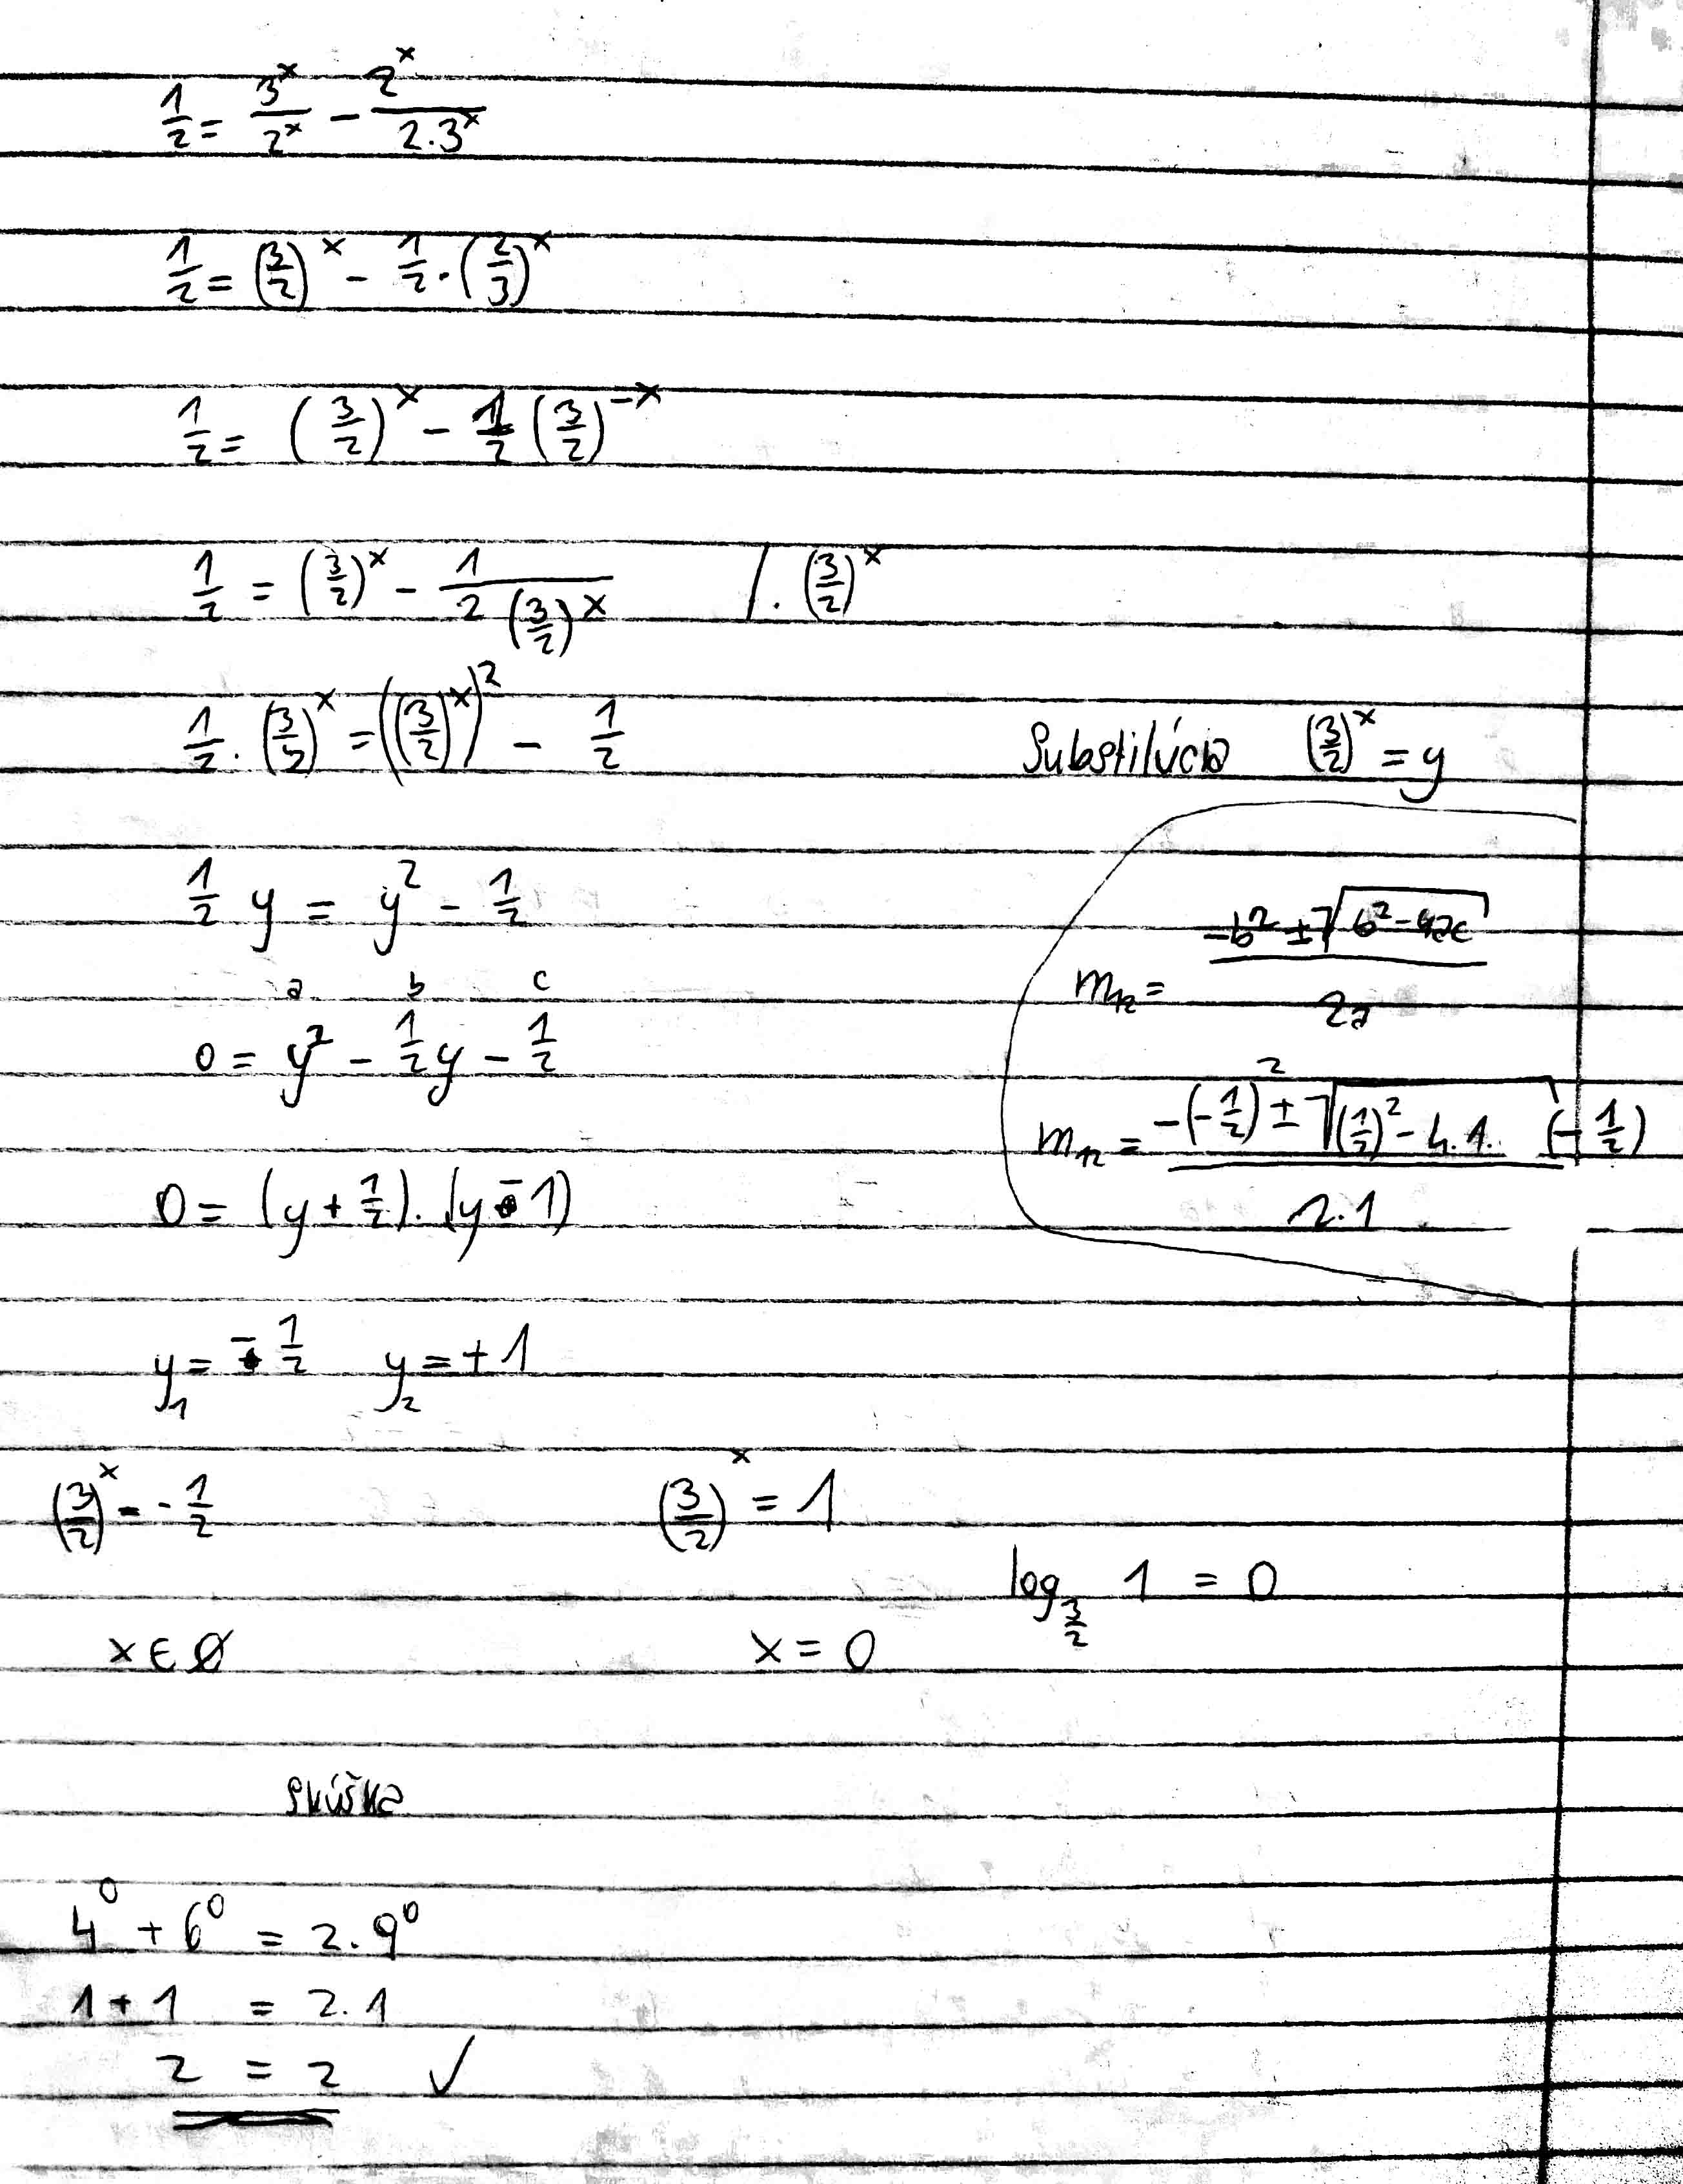 1/2 = 3^x/2^x - 2^x/(2.3^x)
1/2 = (3/2)^x - 1/2 . (2/3)^x
1/2 = (3/2)^x - 1/2 (3/2)^-x
1/2 = (3/2)^x - 1/(2 (3/2)^x) / . (3/2)^x
1/2 . (3/2)^x = ((3/2)^x)^2 - 1/2
Substitúcia (3/2)^x = y
1/2 y = y^2 - 1/2
a b c
0 = y^2 - 1/2 y - 1/2
m12 = (-b^2 ± √(b^2 - 4ac))/2a
m12 = (-(-1/2)^2 ± √((1/2)^2 - 4.1. (-1/2)))/2.1
0 = (y + 1/2) . (y - 1)
y1 = - 1/2 y2 = + 1
(3/2)^x = - 1/2 (3/2)^x = 1
log3/2 1 = 0
x ∈ ∅ x = 0
skúška
4^0 + 6^0 = 2.9^0
1 + 1 = 2.1
2 = 2 ✓